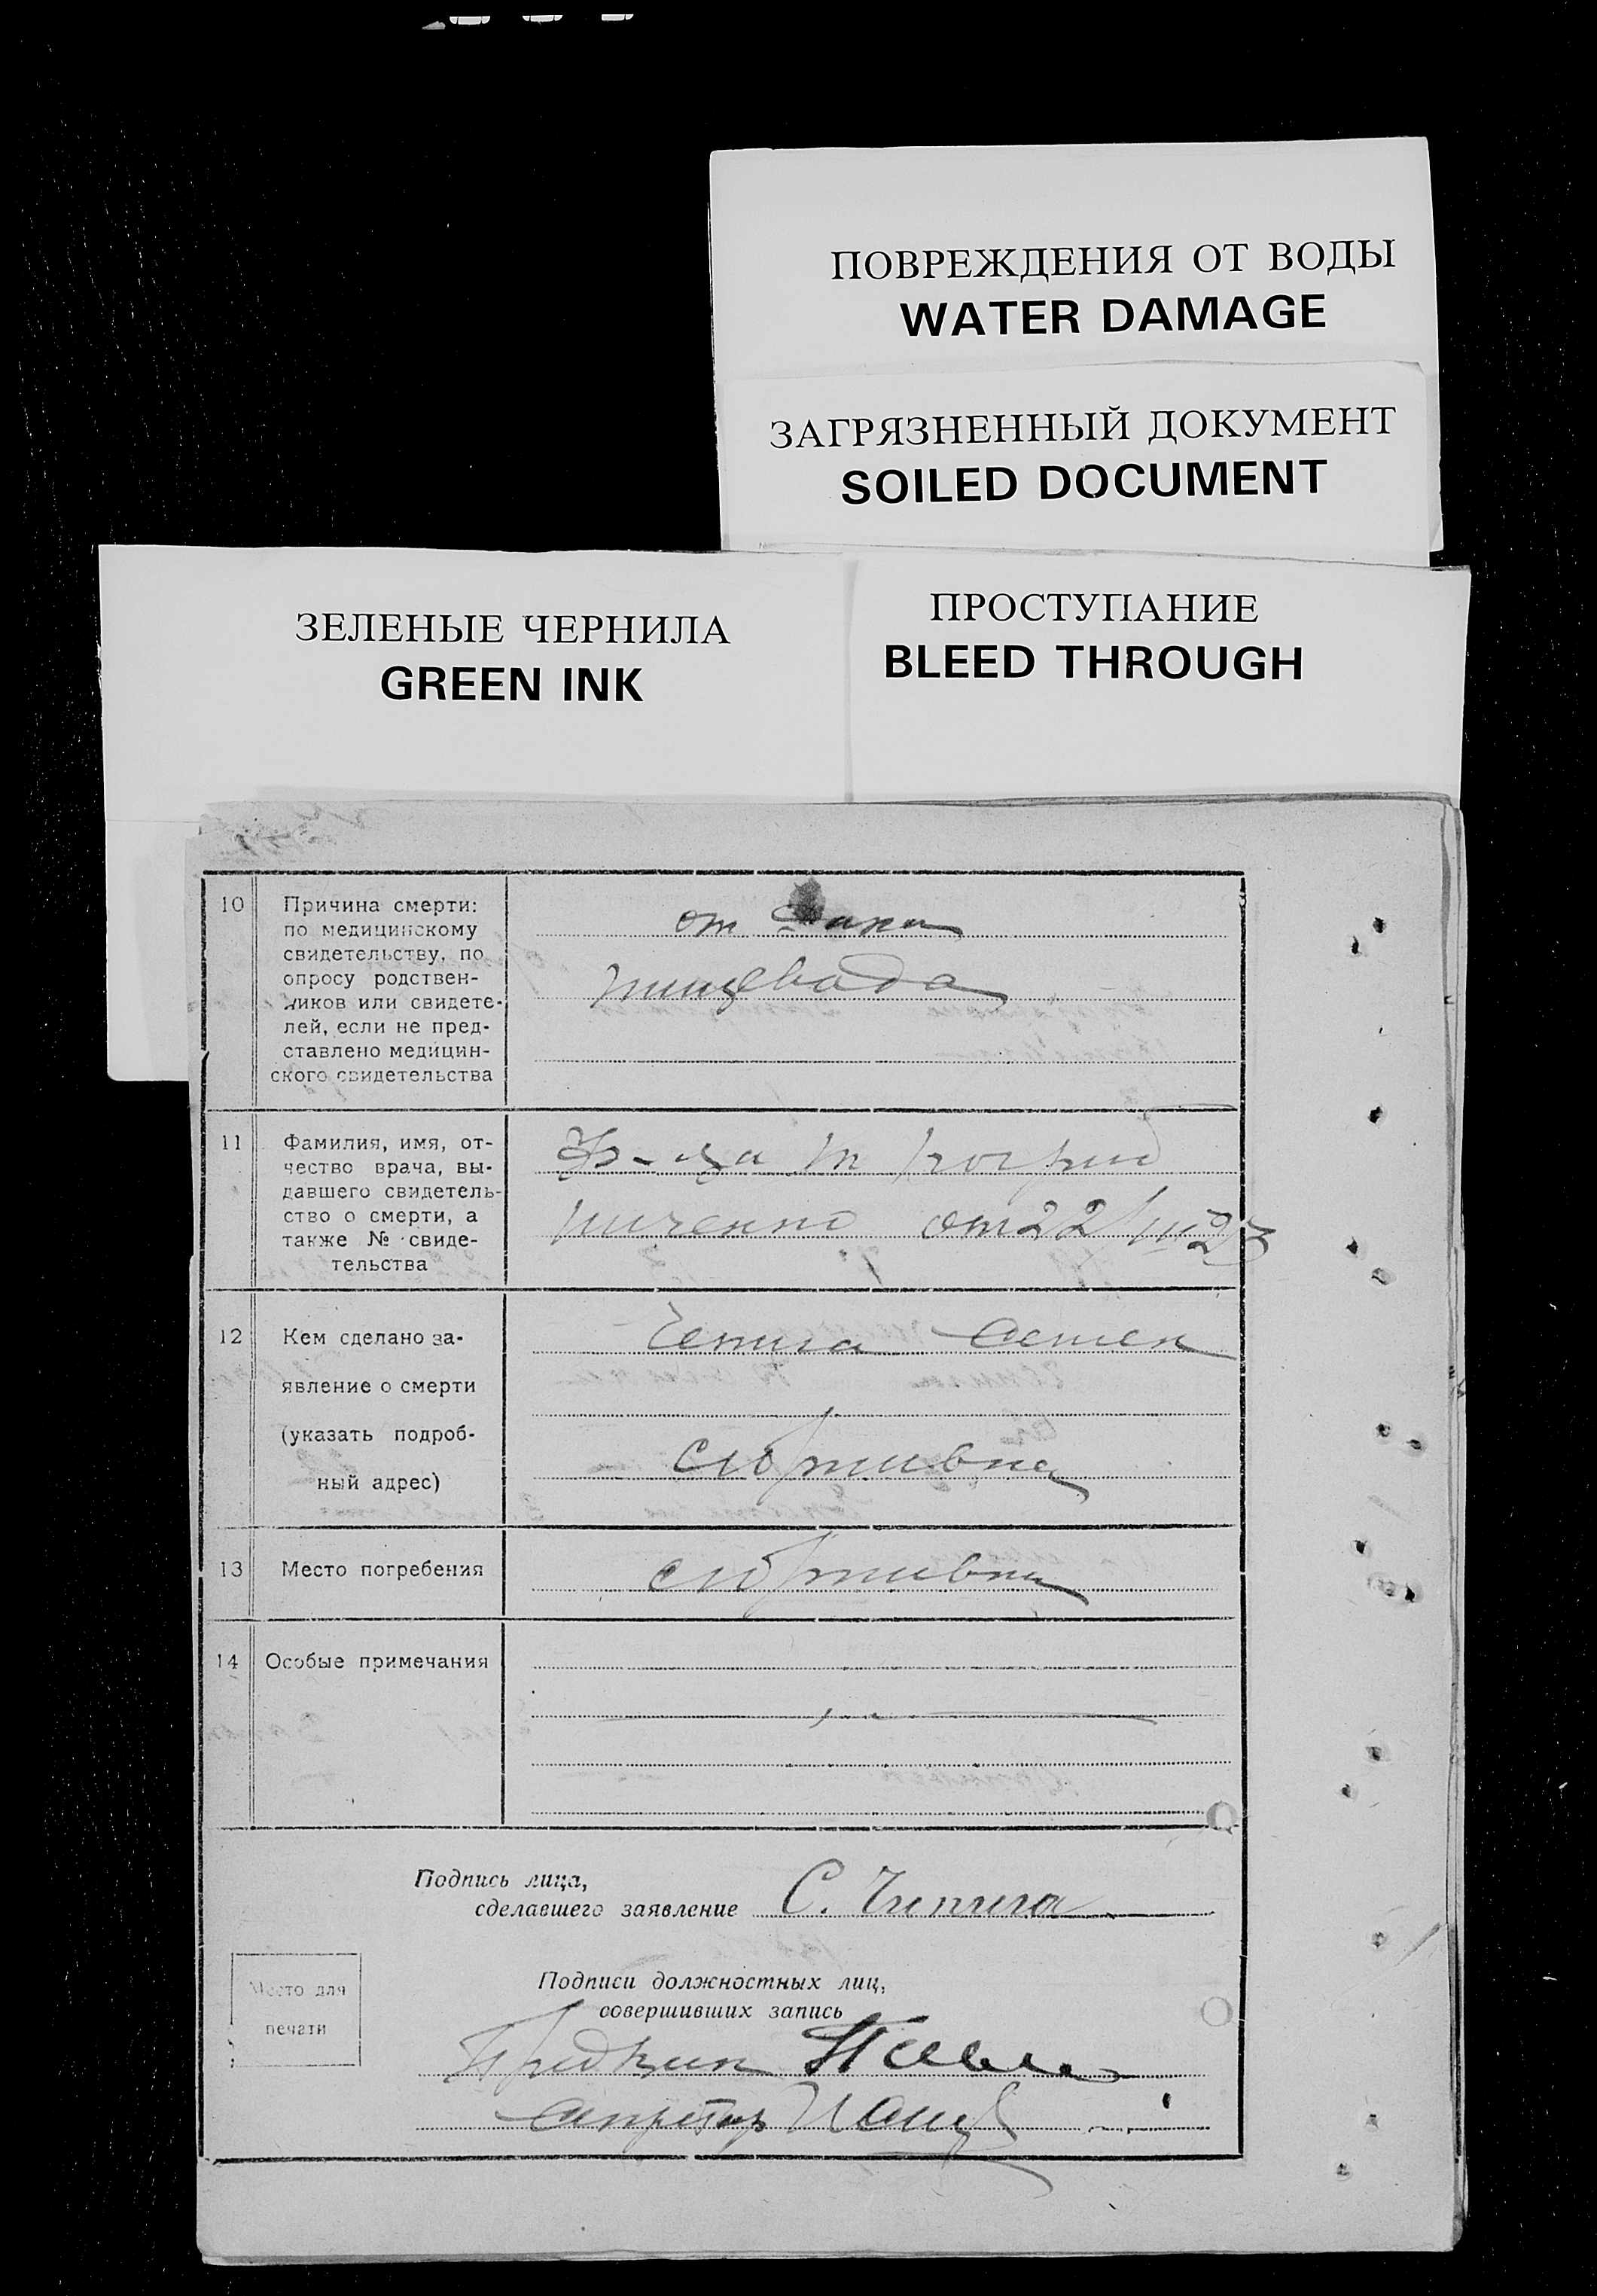 ПОВРЕЖДЕНИЯ ОТ ВОДЫ
WATER DAMAGE
ЗАГРЯЗНЕННЫЙ ДОКУМЕНТ
SOILED DOCUMENT
ЗЕЛЕНЫЕ ЧЕРНИЛА
GREEN INK
ПРОСТУПАНИЕ
BLEED THROUGH
10
Причина смерти:
по медицинскому
свидетельству, по
опросу родствен-
ников или свидете-
лей, если не пред-
ставлено медицин-
ского свидетельства
от рака
пищевада
11
Фамилия, имя, от-
чество врача, вы-
давшего свидетель-
ство о смерти, а
также № свиде-
тельства
от 22/III 23
12
Кем сделано за-
явление о смерти
(указать подроб-
ный адрес)
Чепига Семен
13
Место погребения
14
Особые примечания
Подпись лица,
сделавшего заявление С. Чипига
Место для
печати
Подписи должностных лиц,
совершивших запись